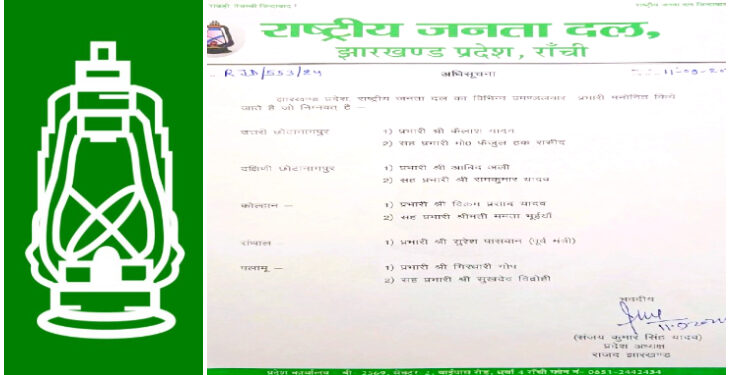 राष्ट्रीय जनता दल,
झारखण्ड प्रदेश, राँची
RJD/553/24
अधिसूचना
11-09-20
झारखण्ड प्रदेश राष्ट्रीय जनता दल का विभिन्न प्रमण्डलवार प्रभारी मनोनित किये
जाते है जो निम्नवत है –
उत्तरी छोटानागपुर
1) प्रभारी श्री कैलाश यादव
2) सह प्रभारी मो0 फैजुल हक रासीद
दक्षिणी छोटानागपुर
1) प्रभारी श्री आबिद अली
2) सह प्रभारी श्री रामकुमार यादव
कोल्हान –
1) प्रभारी श्री विक्रम प्रसाद यादव
2) सह प्रभारी श्रीमती ममता भुईयाँ
संथाल –
1) प्रभारी श्री सुरेश पासवान (पूर्व मंत्री)
पलामू –
1) प्रभारी श्री गिरधारी गोप
2) सह प्रभारी श्री सुखदेव विद्रोही
भवदीय
(संजय कुमार सिंह यादव)
प्रदेश अध्यक्ष
राजद झारखण्ड
प्रदेश कार्यालय बी- 2569, सेक्टर 2, बाईपास रोड, धुर्वा 4 राँची फोन नं- 0651-2442434